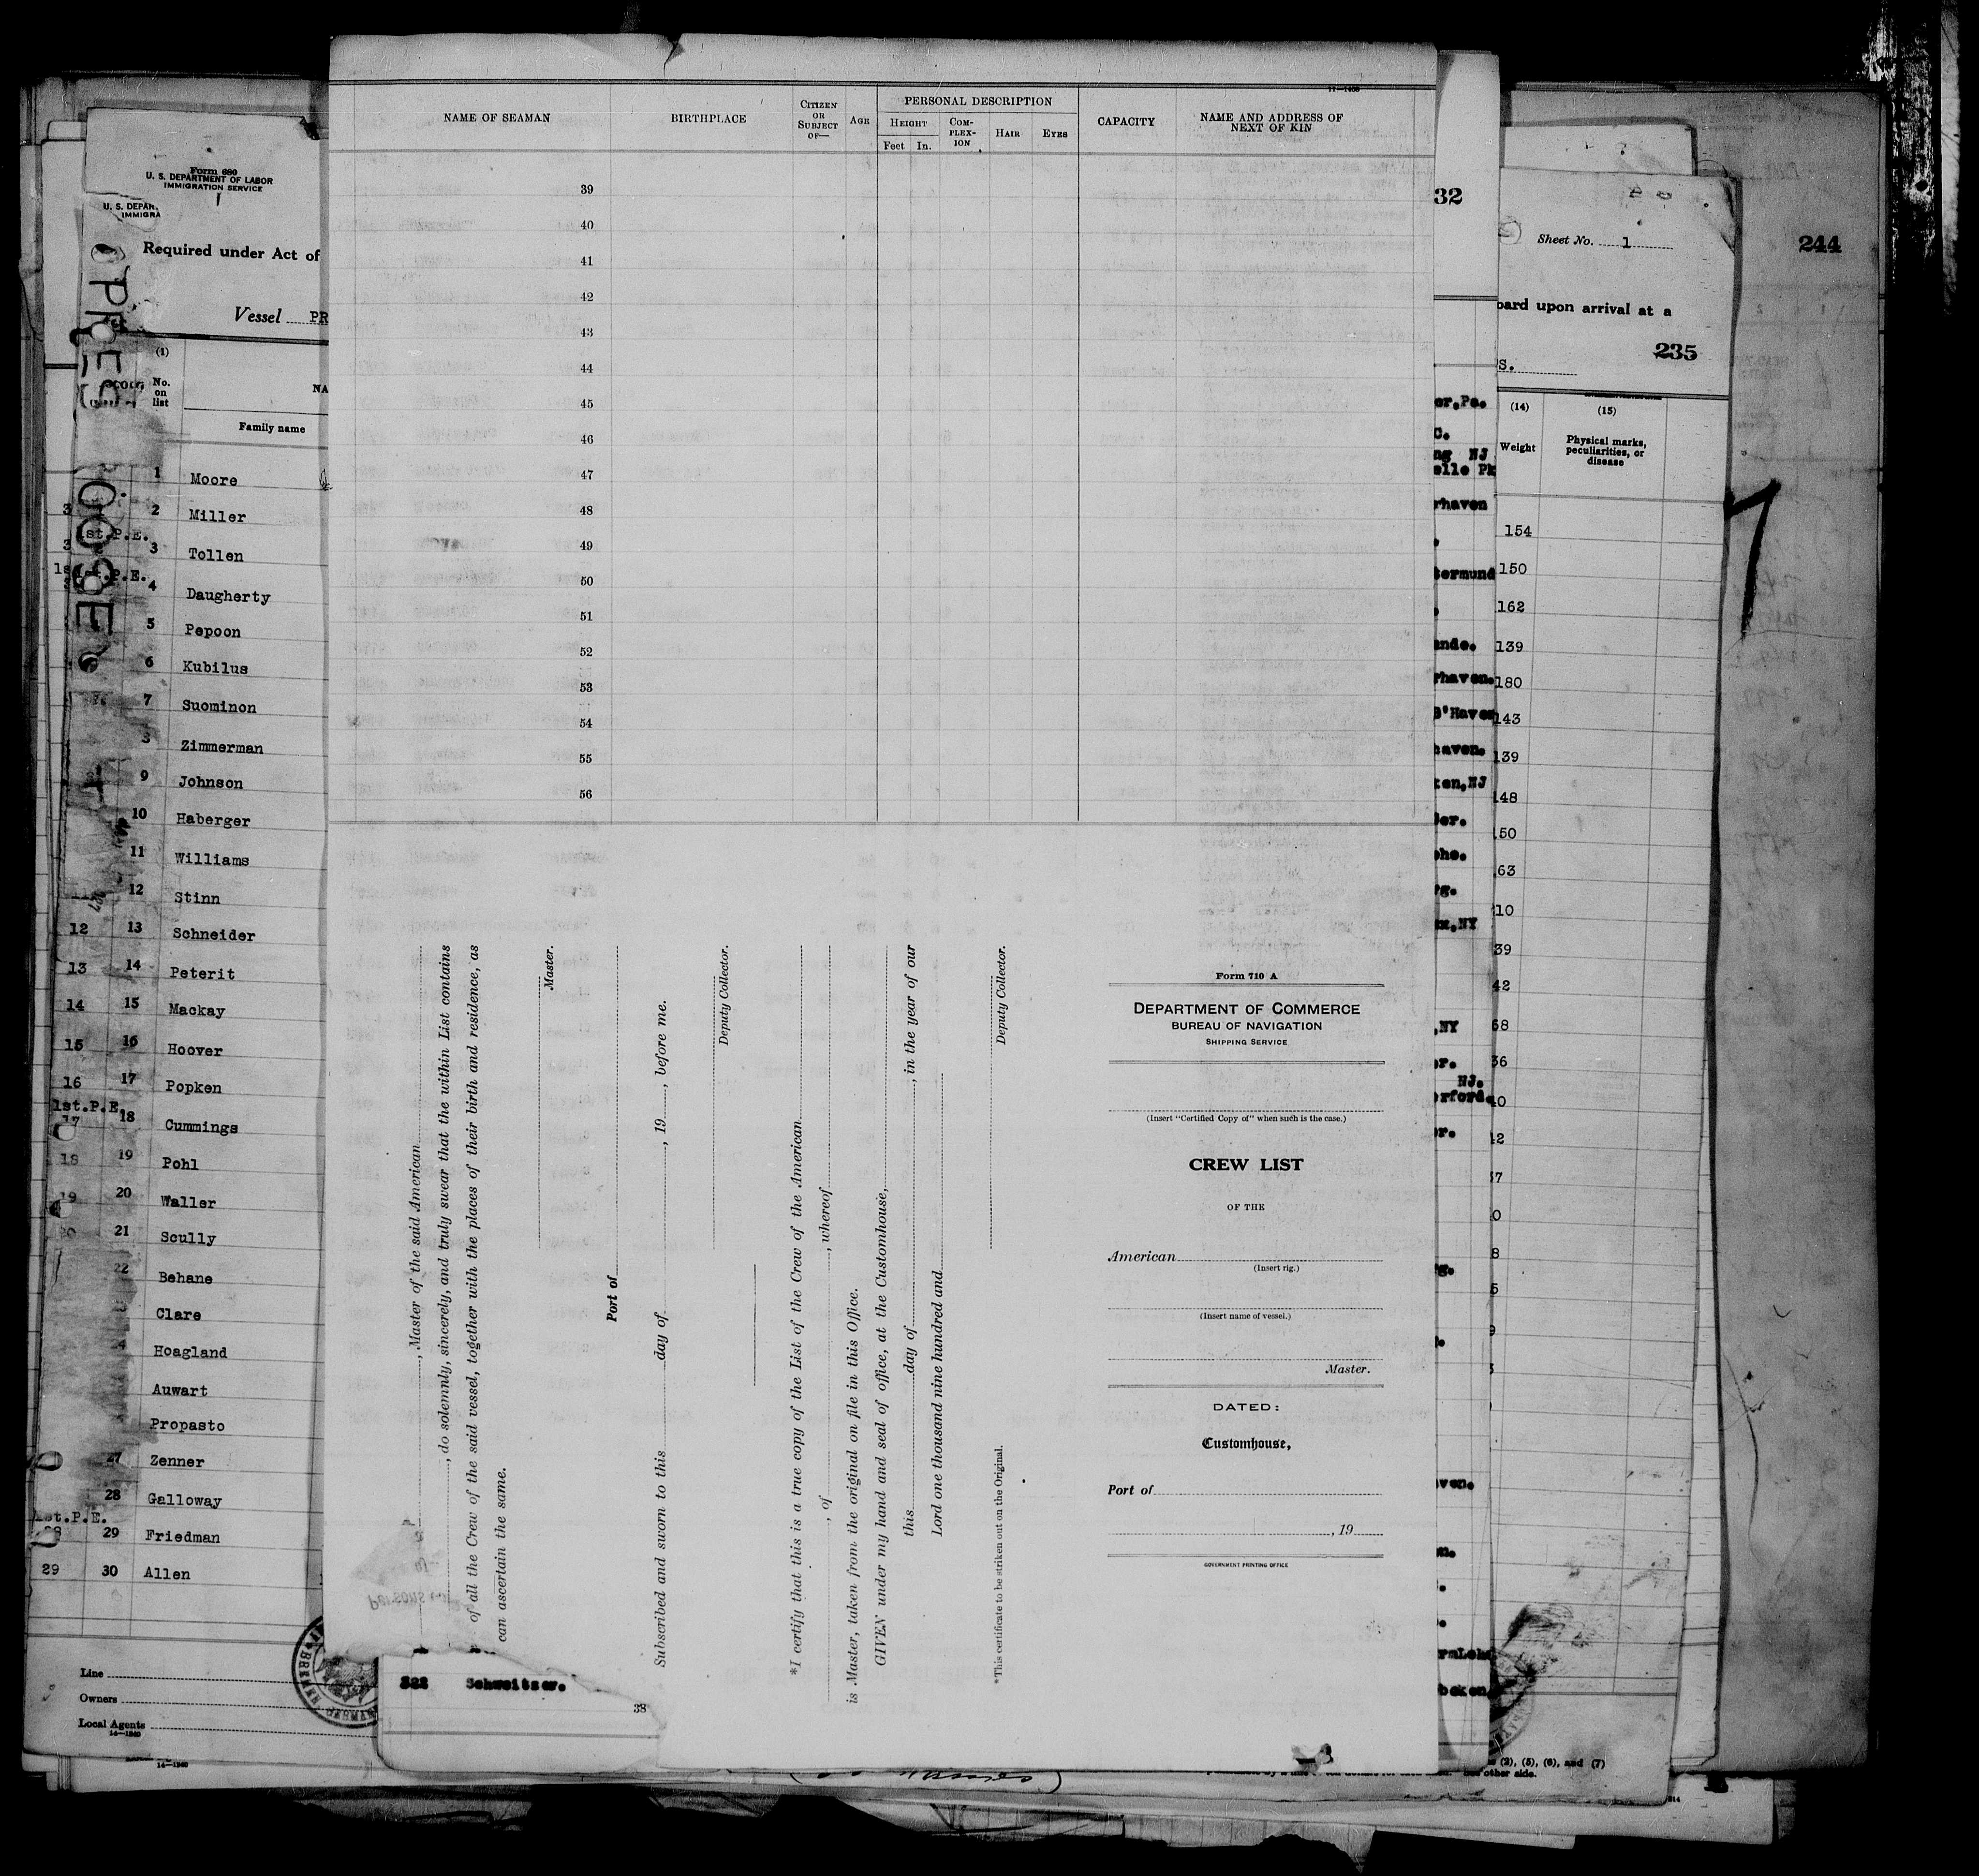 Form 680
U. S. DEPARTMENT OF LABOR
IMMIGRATION SERVICE
U. S. DEPAR
IMMIGRA
Required under Act of
Vessel PR
(1)
No. on list
NA
Family name
1 Moore
2 Miller
1st.P.E.
3 Tollen
4 Daugherty
5 Pepoon
6 Kubilus
7 Suominon
Zimmerman
9 Johnson
10 Haberger
11 Williams
12 Stinn
12 13 Schneider
13 14 Peterit
14 15 Mackay
15 16 Hoover
16 17 Popken
1st.P.E.
17 18 Cummings
18 19 Pohl
19 20 Waller
20 21 Scully
22 Behane
Clare
Hoagland
Auwart
Propasto
27 Zenner
28 Galloway
1st.P.E.
28 29 Friedman
29 30 Allen
Line
Owners
Local Agents
14—1240
14—1240
11—1455
NAME OF SEAMAN
BIRTHPLACE
CITIZEN OR SUBJECT OF—
AGE
PERSONAL DESCRIPTION
HEIGHT
Feet In.
COM-PLEX-ION
HAIR
EYES
CAPACITY
NAME AND ADDRESS OF NEXT OF KIN
39
40
41
42
43
44
45
46
47
48
49
50
51
52
53
54
55
56
, Master of the said American
, do solemnly, sincerely, and truly swear that the within List contains
of all the Crew of the said vessel, together with the places of their birth and residence, as
can ascertain the same.
Master.
Port of
Subscribed and sworn to this day of , 19 , before me.
Deputy Collector.
*I certify that this is a true copy of the List of the Crew of the American
, of , whereof
is Master, taken from the original on file in this Office.
GIVEN under my hand and seal of office, at the Customhouse,
this day of , in the year of our
Lord one thousand nine hundred and
Deputy Collector.
*This certificate to be striken out on the Original.
Form 710 A
DEPARTMENT OF COMMERCE
BUREAU OF NAVIGATION
SHIPPING SERVICE
(Insert "Certified Copy of" when such is the case.)
CREW LIST
OF THE
American
(Insert rig.)
(Insert name of vessel.)
Master.
DATED:
Customhouse,
Port of
, 19
GOVERNMENT PRINTING OFFICE
322 Schweitzer.
38
32
er,Pa.
C.
ng NJ
elle Pk
rhaven
termund
ande.
rhaven.
haven.
ken,NJ
x,NY
,NY
er.
NJ.
erford.
er.
aven.
Sheet No. 1
oard upon arrival at a
235
S.
(14)
Weight
(15)
Physical marks, peculiarities, or disease
154
150
162
139
180
143
139
148
50
63
10
39
42
68
36
40
12
37
0
8
5
9
(2), (5), (6), and (7)
other side.
244